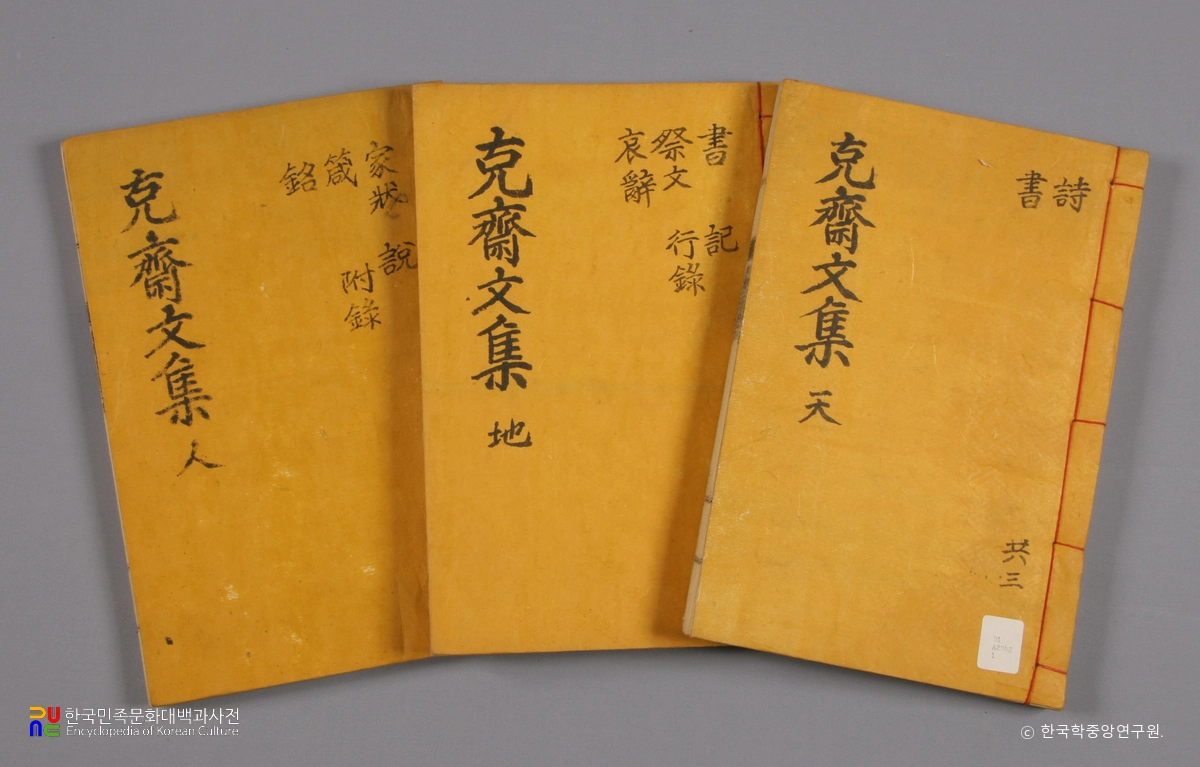 克齋文集 天
詩
書
共三
克齋文集 地
書 記
祭文 行錄
哀辭
克齋文集 人
家狀 說
箴 附錄
銘
한국민족문화대백과사전
Encyclopedia of Korean Culture
ⓒ 한국학중앙연구원.